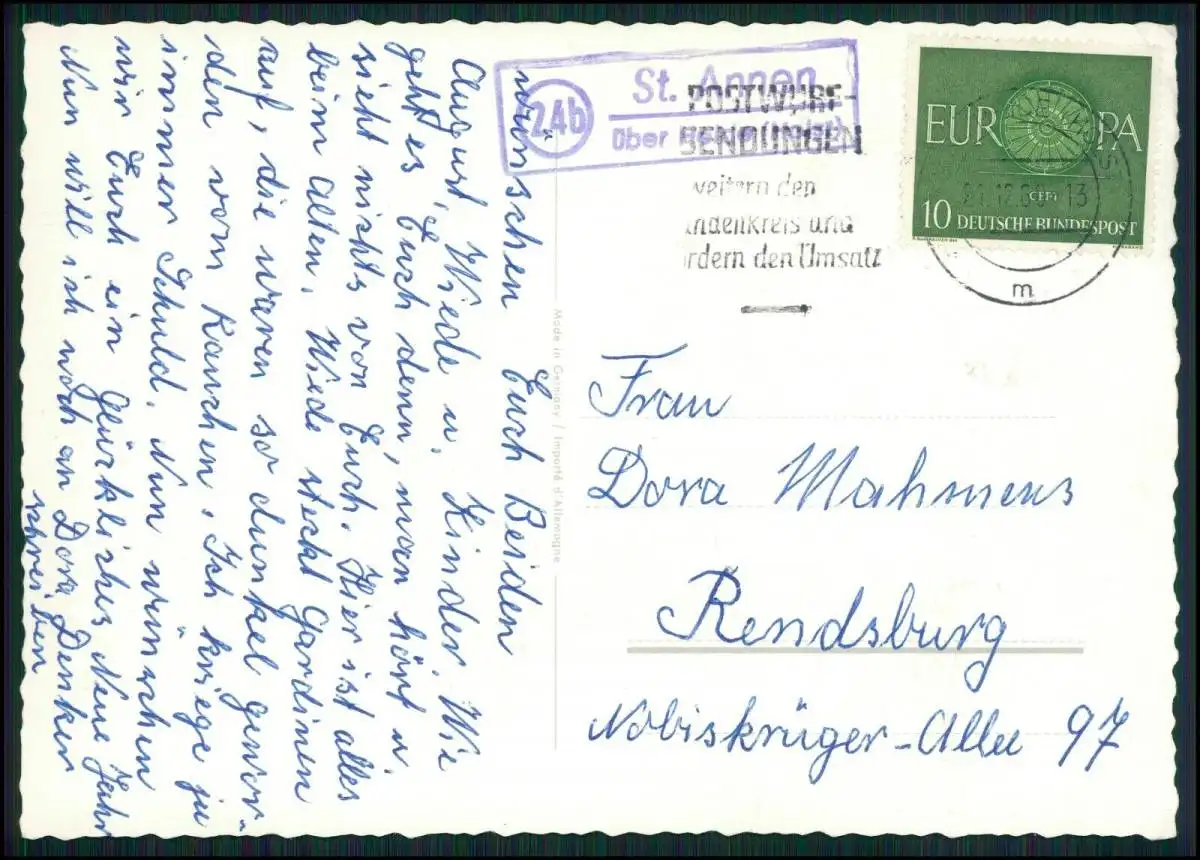 wünschen Euch Beiden
August, Wiede u. Kinder. Wie
geht es Euch denn, man hört u.
sieht nichts von Euch. Hier ist alles
beim alten. Wiede steckt Gardinen
auf, die waren so dunkel gewor-
den vom Rauchen. Ich kriege ja
immer Schuld. Nun wünschen
wir Euch ein glückliches Neue Jahr
Nun will ich noch an Dora Denker
schreiben
24b
St. Annen
über
POSTWURF-
SENDUNGEN
weitern den
undenkreis und
rdern den Umsatz
EUROPA
CEPT
10 DEUTSCHE BUNDESPOST
21.12.60-13
m
Made in Germany / Importé d'Allemagne
Frau
Dora Mahmens
Rendsburg
Nobiskrüger-Allee 97